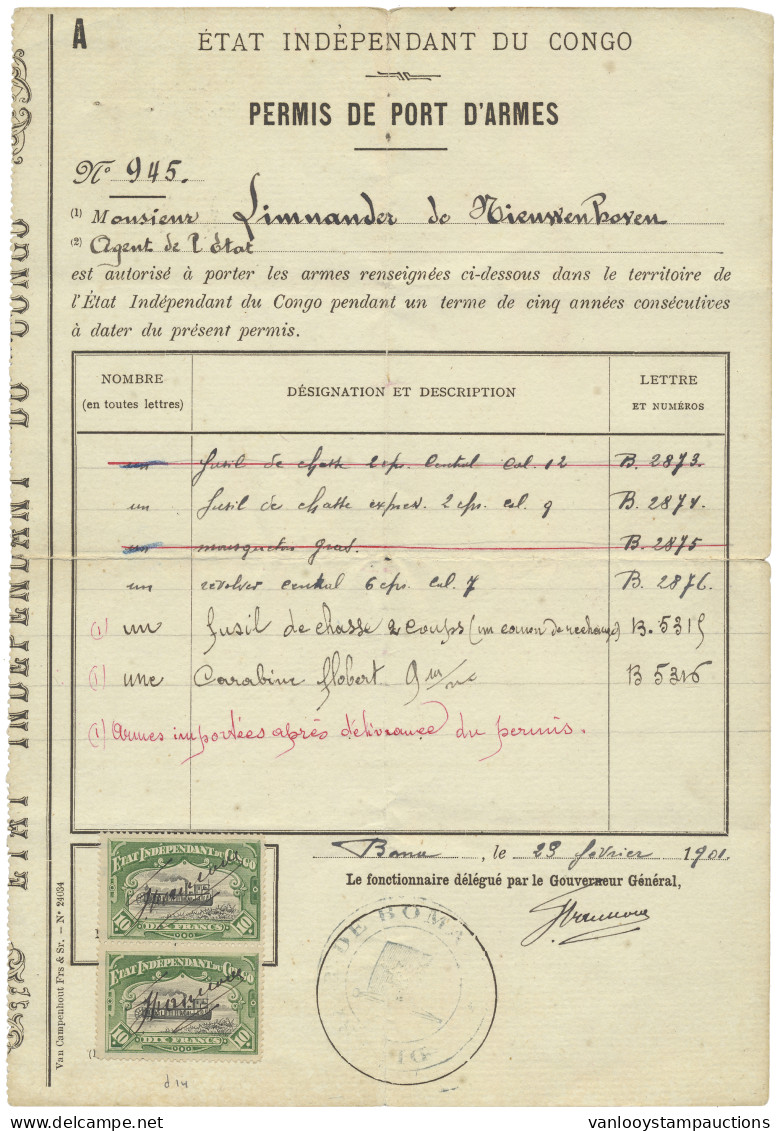 A
ÉTAT INDÉPENDANT DU CONGO
PERMIS DE PORT D'ARMES
No 945.
(1) Monsieur Limnander de Nieuwenhoven
(2) Agent de l'État
est autorisé à porter les armes renseignées ci-dessous dans le territoire de
l'État Indépendant du Congo pendant un terme de cinq années consécutives
à dater du présent permis.
NOMBRE
(en toutes lettres)
DÉSIGNATION ET DESCRIPTION
LETTRE
ET NUMÉROS
un fusil de chasse 2 cps. Central Cal. 12 B. 2873.
un fusil de chasse expres. 2 cps. cal. 9 B. 2874.
un mousqueton gras. B. 2875
un revolver central 6 cps. Cal. 7 B. 2876.
(1) un fusil de chasse 2 coups (un canon de rechange) B. 5315
(1) une Carabine flobert 9 m/m B 5316
(1) Armes importées après délivrance du permis.
Boma, le 23 février 1901.
Le fonctionnaire délégué par le Gouverneur Général,
ÉTAT INDÉPENDANT DU CONGO
10 DIX FRANCS 10
ÉTAT INDÉPENDANT DU CONGO
10 DIX FRANCS 10
DE BOMA
ÉTAT INDÉPENDANT DU CONGO
Van Campenhout Frs & Sr. — No 24034
(1)
d 14
vanlooystampauctions